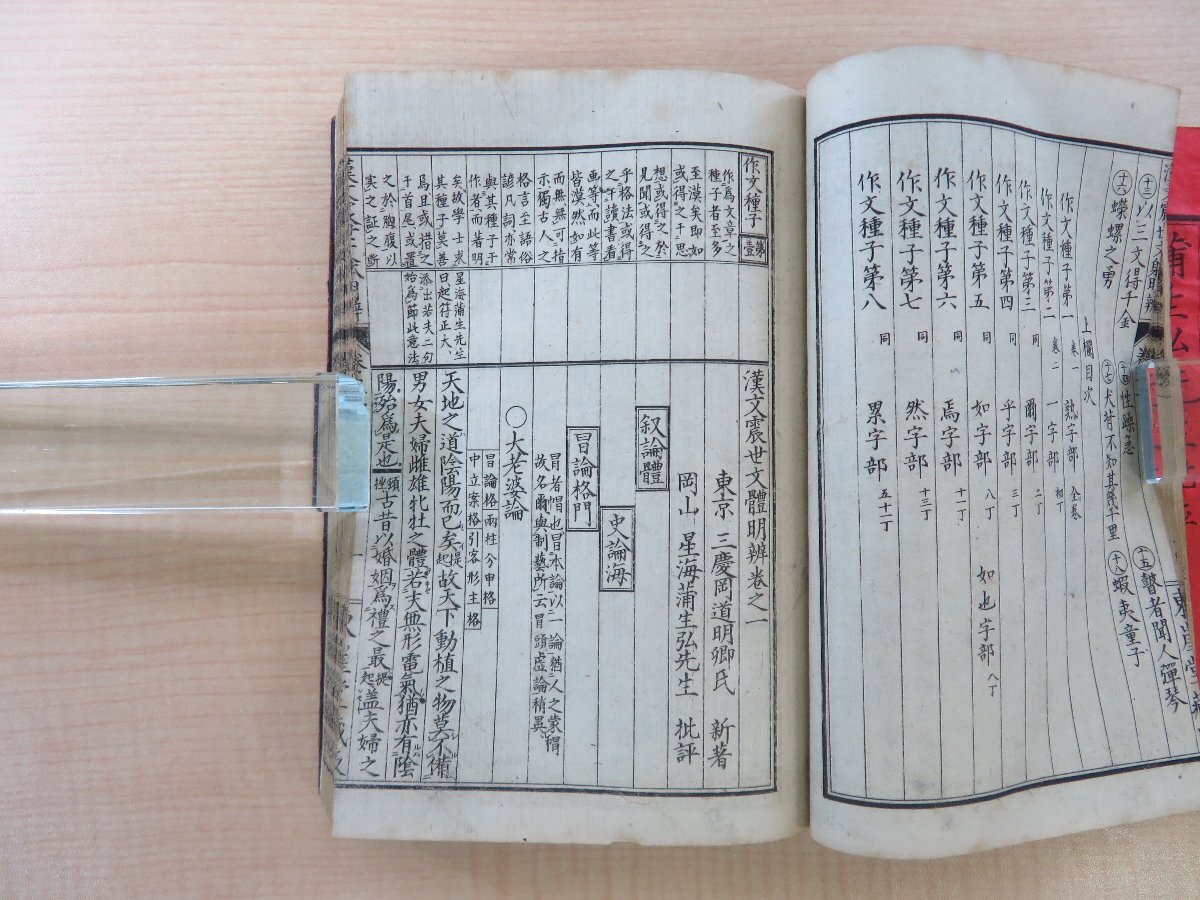 十三 以三文得千金
十四 性躁急
十五 瞽者聞人彈琴
十六 蠑螺之勇
十七 犬昔不知其幾千里
十八 蝦夷童子
上欄目次
作文種子第一 卷一 熟字部 全卷
作文種子第二 卷二 一字部 初丁
作文種子第三 同 爾字部 二丁
作文種子第四 同 乎字部 三丁
作文種子第五 同 如字部 八丁 如也字部 八丁
作文種子第六 同 焉字部 十一丁
作文種子第七 同 然字部 十三丁
作文種子第八 同 累字部 五十二丁
作文種子 第壹
作爲文章之
種子者至多
至漠矣即如
或得之于思
想或得之於
見聞或得之
乎格法或得
之乎讀書看
画等而此等
皆漠然如有
而無無可措
示獨古人之
格言至語俗
諺凡詞亦常
與其種子于
作者而著明
矣故學士求
其種子莫善
焉且或措之
于首尾或置
之於胸腹以
実之証之斷
星海蒲生先生
曰起符正大、
添出若夫二句
始爲節此意法
漢文震世文體明辨卷之一
東京 三慶岡道明卿氏 新著
岡山 星海蒲生弘先生 批評
叙論體
史論海
冒論格門
冒者帽也冒本論以一論猶人之蒙帽
故名爾與制藝所云冒頭虛論稍異
○大老婆論
冒論格兩柱分申格
中立案格引客形主格
天地之道陰陽而已矣提起故天下動植之物莫不備
男女夫婦雌雄牝牡之體若夫無形電氣猶亦有陰
陽殆爲是也頭挫古昔以婚姻爲禮之最提起盖夫婦之